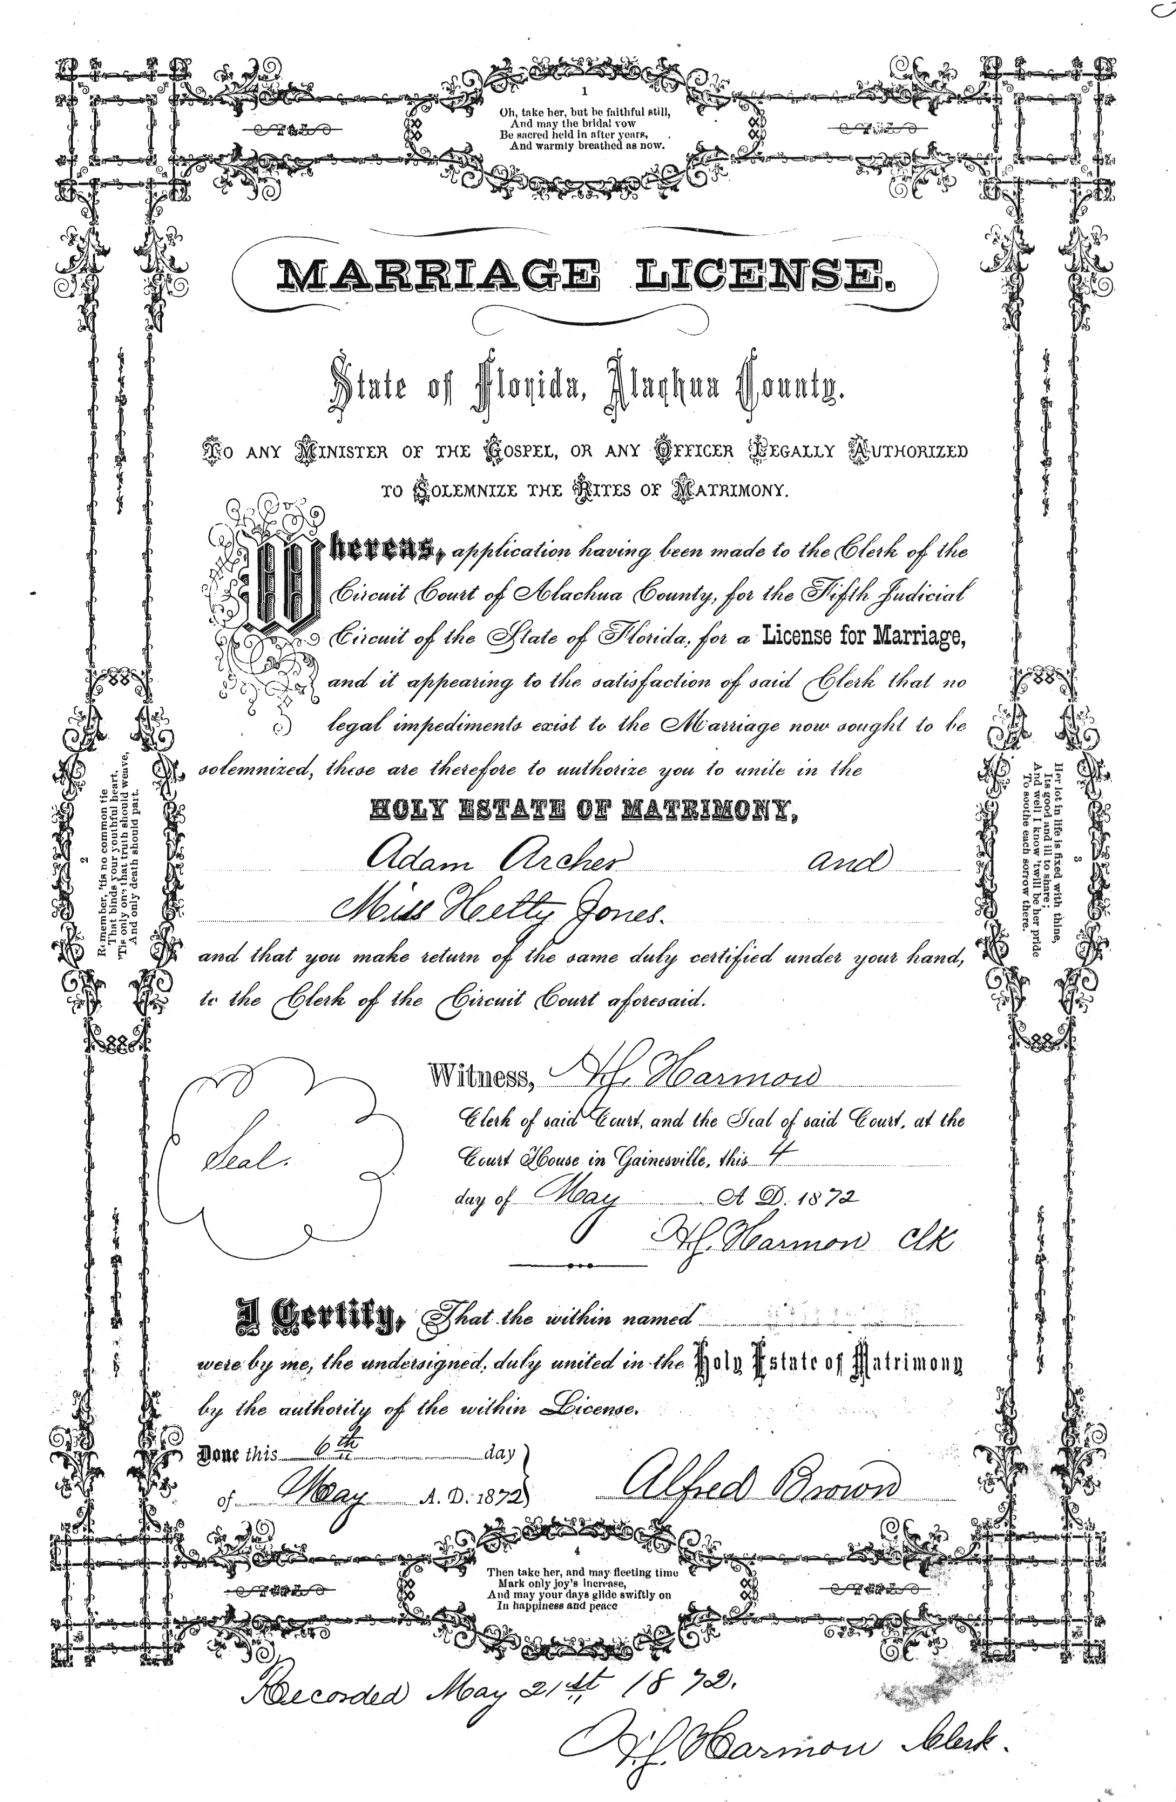 1
Oh, take her, but be faithful still,
And may the bridal vow
Be sacred held in after years,
And warmly breathed as now.
MARRIAGE LICENSE.
State of Florida, Alachua County.
TO ANY MINISTER OF THE GOSPEL, OR ANY OFFICER LEGALLY AUTHORIZED
TO SOLEMNIZE THE RITES OF MATRIMONY.
Whereas, application having been made to the Clerk of the
Circuit Court of Alachua County, for the Fifth Judicial
Circuit of the State of Florida, for a License for Marriage,
and it appearing to the satisfaction of said Clerk that no
legal impediments exist to the Marriage now sought to be
solemnized, these are therefore to authorize you to unite in the
HOLY ESTATE OF MATRIMONY,
Adam Archer and
Miss Hetty Jones.
and that you make return of the same duly certified under your hand,
to the Clerk of the Circuit Court aforesaid.
2
Remember, 'tis no common tie
That binds your youthful heart,
'Tis only one that truth should weave,
And only death should part.
3
Her lot in life is fixed with thine,
Its good and ill to share;
And well I know 'twill be her pride
To soothe each sorrow there.
Seal.
Witness, H.J. Harmon
Clerk of said Court, and the Seal of said Court, at the
Court House in Gainesville, this 4
day of May A D. 1872
H.J. Harmon Clk
I Certify, That the within named
were by me, the undersigned, duly united in the Holy Estate of Matrimony
by the authority of the within License.
Done this 6th day
of May A. D. 1872
Alfred Brown
4
Then take her, and may fleeting time
Mark only joy's increase,
And may your days glide swiftly on
In happiness and peace
Recorded May 21st 1872.
H.J. Harmon Clerk.